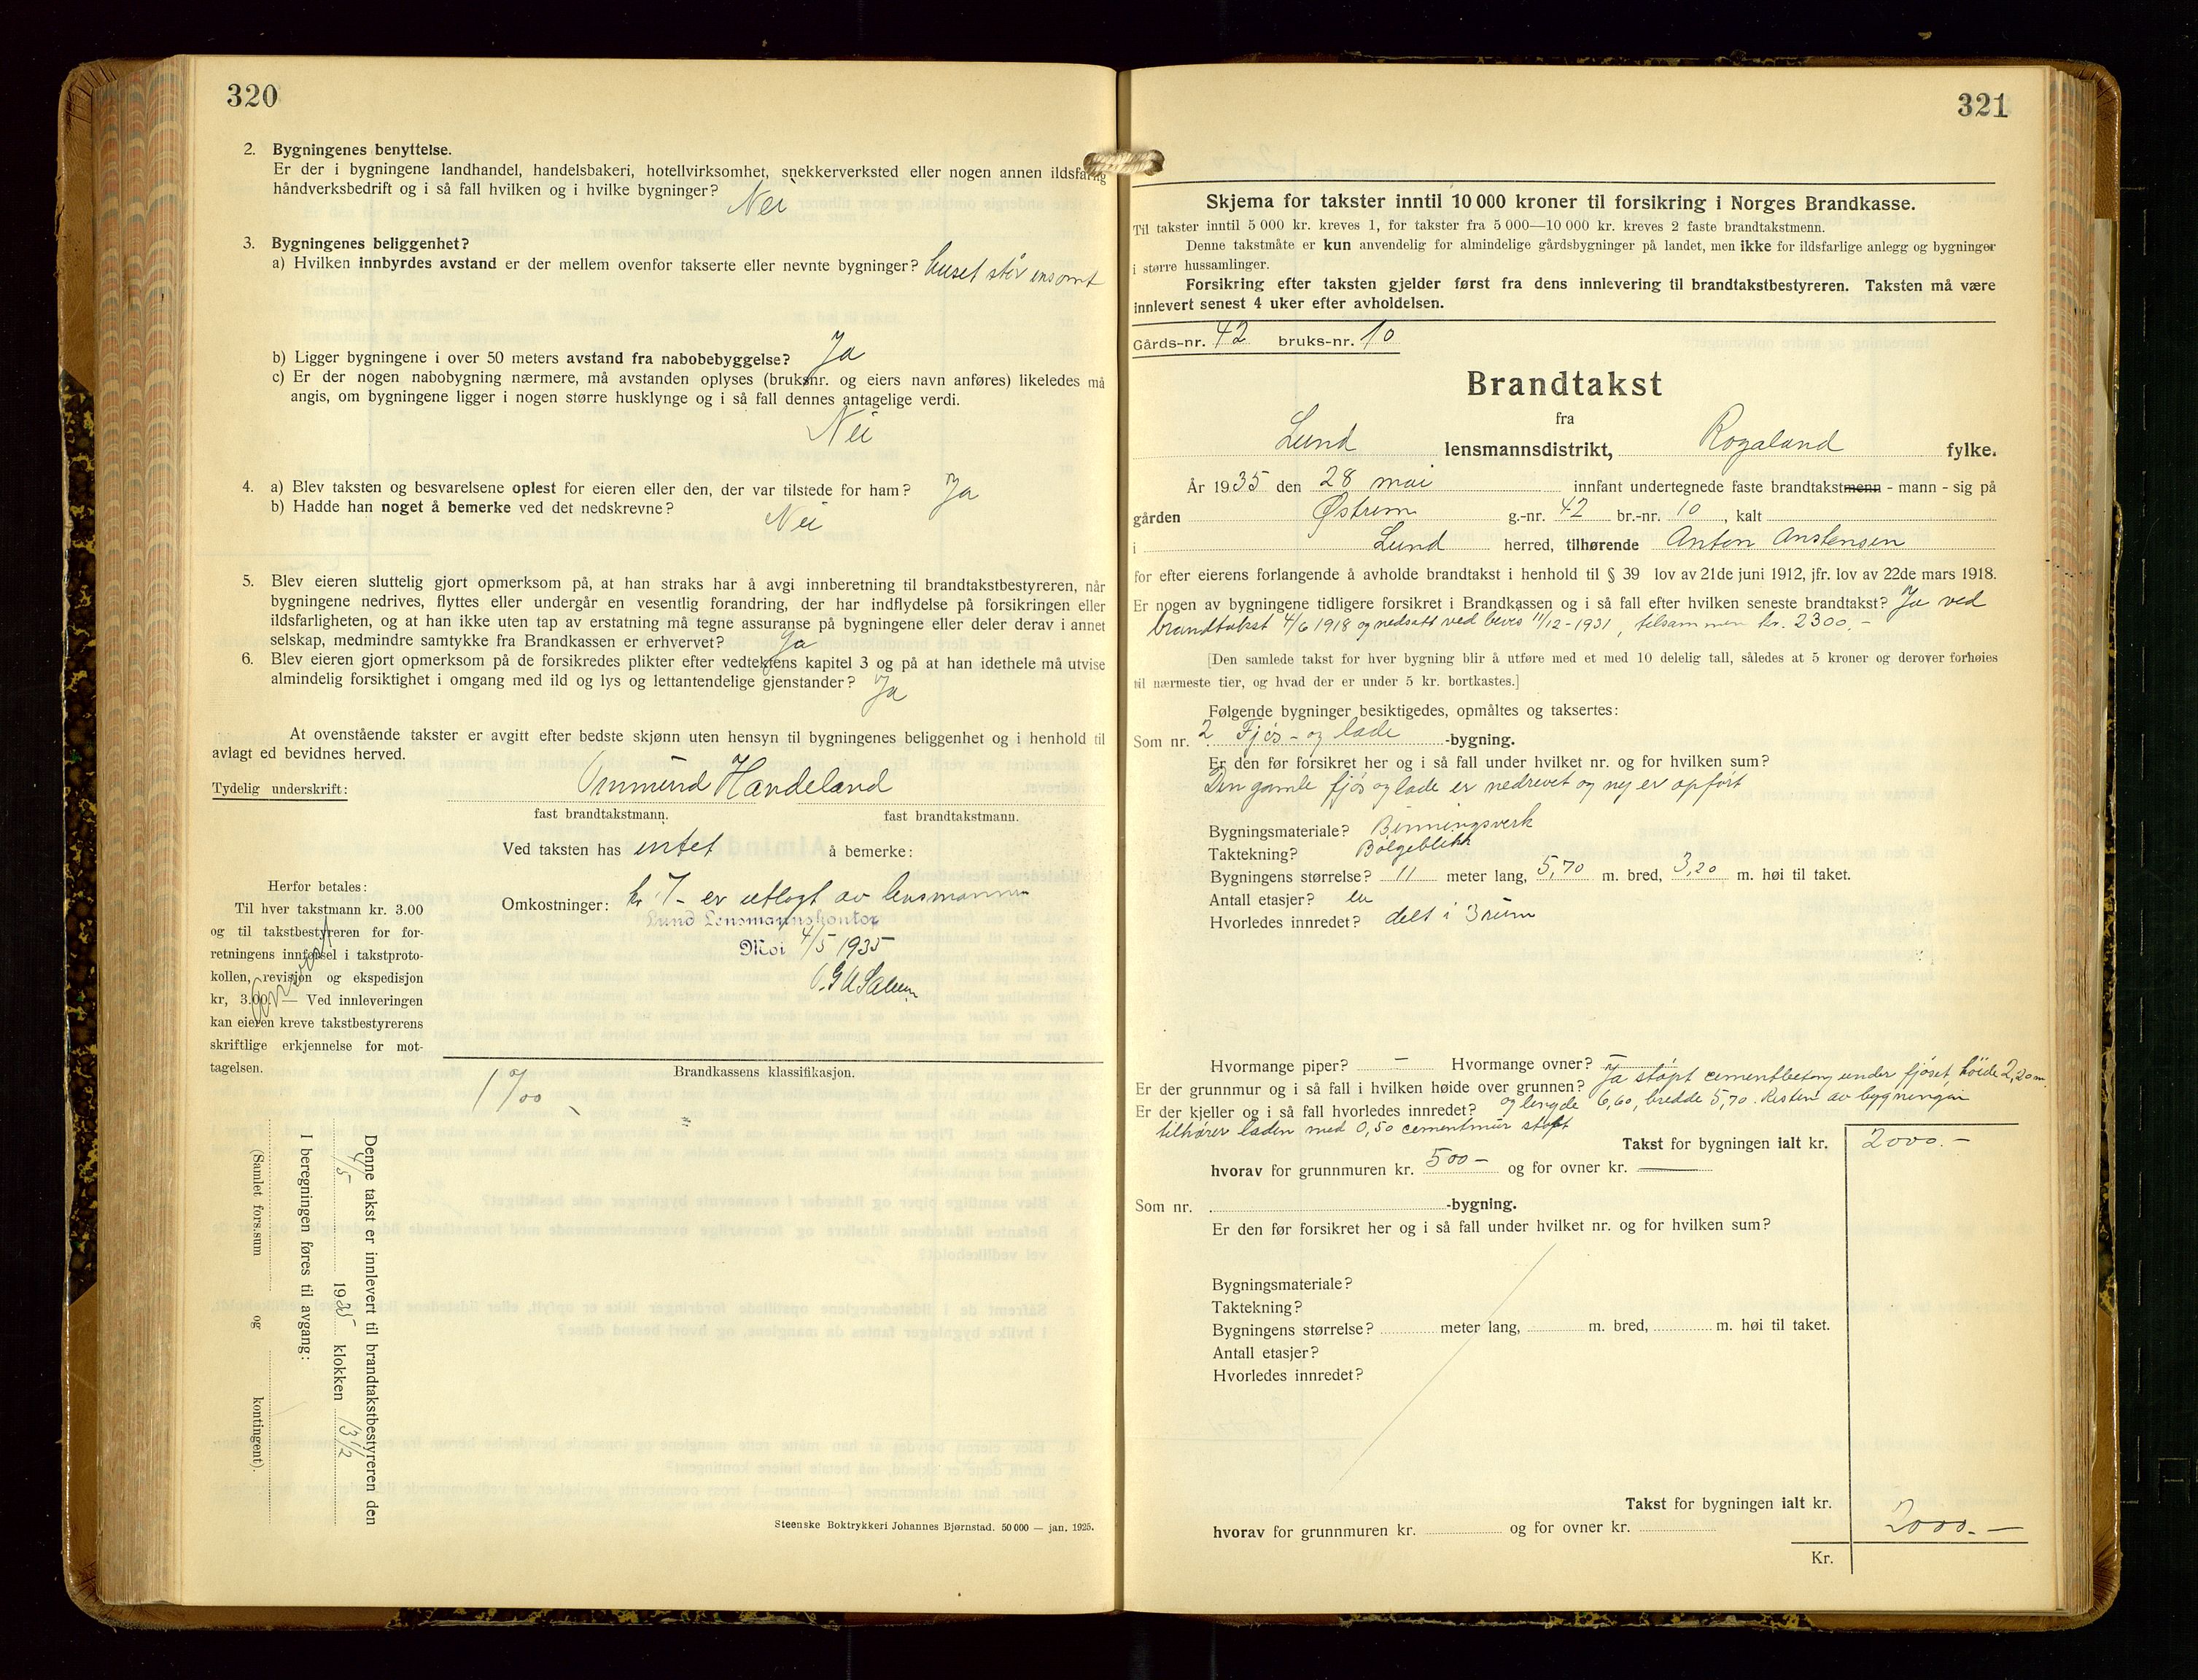 320
2. Bygningenes benyttelse.
Er der i bygningene landhandel, handelsbakeri, hotellvirksomhet, snekkerverksted eller nogen annen ildsfarlig
håndverksbedrift og i så fall hvilken og i hvilke bygninger? Nei
3. Bygningenes beliggenhet?
a) Hvilken innbyrdes avstand er der mellem ovenfor takserte eller nevnte bygninger? huset står ensomt
b) Ligger bygningene i over 50 meters avstand fra nabobebyggelse? Ja
c) Er der nogen nabobygning nærmere, må avstanden oplyses (bruksnr. og eiers navn anføres) likeledes må
angis, om bygningene ligger i nogen større husklynge og i så fall dennes antagelige verdi.
Nei
4. a) Blev taksten og besvarelsene oplest for eieren eller den, der var tilstede for ham? Ja
b) Hadde han noget å bemerke ved det nedskrevne? Nei
5. Blev eieren sluttelig gjort opmerksom på, at han straks har å avgi innberetning til brandtakstbestyreren, når
bygningene nedrives, flyttes eller undergår en vesentlig forandring, der har indflydelse på forsikringen eller
ildsfarligheten, og at han ikke uten tap av erstatning må tegne assuranse på bygningene eller deler derav i annet
selskap, medmindre samtykke fra Brandkassen er erhvervet? Ja
6. Blev eieren gjort opmerksom på de forsikredes plikter efter vedtektens kapitel 3 og på at han idethele må utvise
almindelig forsiktighet i omgang med ild og lys og lettantendelige gjenstander? Ja
At ovenstående takster er avgitt efter bedste skjønn uten hensyn til bygningenes beliggenhet og i henhold til
avlagt ed bevidnes herved.
Tydelig underskrift: Ommund Handeland
fast brandtakstmann. fast brandtakstmann.
Ved taksten has intet å bemerke:
Omkostninger: kr 7- er utlagt av lensmannen
Lund Lensmannskontor
Moi 4/5 1935
Herfor betales:
Til hver takstmann kr. 3.00
og til takstbestyreren for for-
retningens innførsel i takstproto-
kollen, revisjon og ekspedisjon
kr, 3.00. — Ved innleveringen
kan eieren kreve takstbestyrerens
skriftlige erkjennelse for mot-
tagelsen.
Brandkassens klassifikasjon.
1 %00
Denne takst er innlevert til brandtakstbestyreren den
4/5 1935 klokken 13 1/2
I beregningen føres til avgang:
(Samlet fors.sum og kontingent).
Steenske Boktrykkeri Johannes Bjørnstad. 50 000 — jan. 1925.
321
Skjema for takster inntil 10 000 kroner til forsikring i Norges Brandkasse.
Til takster inntil 5 000 kr. kreves 1, for takster fra 5 000—10 000 kr. kreves 2 faste brandtakstmenn.
Denne takstmåte er kun anvendelig for almindelige gårdsbygninger på landet, men ikke for ildsfarlige anlegg og bygninger
i større hussamlinger.
Forsikring efter taksten gjelder først fra dens innlevering til brandtakstbestyreren. Taksten må være
innlevert senest 4 uker efter avholdelsen.
Gårds-nr. 42 bruks-nr. 10
Brandtakst
fra
Lund lensmannsdistrikt, Rogaland fylke.
År 1935 den 28 mai innfant undertegnede faste brandtakstmenn - mann - sig på
gården Østrem g.-nr. 42 br.-nr. 10, kalt
i Lund herred, tilhørende Anton Anstensen
for efter eierens forlangende å avholde brandtakst i henhold til § 39 lov av 21de juni 1912, jfr. lov av 22de mars 1918.
Er nogen av bygningene tidligere forsikret i Brandkassen og i så fall efter hvilken seneste brandtakst? Ja ved
brandtakst 4/6 1918 og nedsatt ved bevis 11/12-1931, tilsammen kr. 2300.-
[Den samlede takst for hver bygning blir å utføre med et med 10 delelig tall, således at 5 kroner og derover forhøies
til nærmeste tier, og hvad der er under 5 kr. bortkastes.]
Følgende bygninger besiktigedes, opmåltes og taksertes:
Som nr. 2 Fjøs- og lade -bygning.
Er den før forsikret her og i så fall under hvilket nr. og for hvilken sum?
Den gamle fjøs og lade er nedrevet og ny er opført
Bygningsmateriale? Binningsverk
Taktekning? Bølgeblikk
Bygningens størrelse? 11 meter lang, 5,70 m. bred, 3,20 m. høi til taket.
Antall etasjer? en
Hvorledes innredet? delt i 3 rum
Hvormange piper? — Hvormange ovner? —
Er der grunnmur og i så fall i hvilken høide over grunnen? Ja støpt cementbetong under fjøset, høide 2,20 m.
Er der kjeller og i så fall hvorledes innredet? og lengde 6,60, bredde 5,70. Resten av bygningen
tilhører laden med 0,50 cementmur støpt
Takst for bygningen ialt kr. 2000.-
hvorav for grunnmuren kr. 500- og for ovner kr. —
Som nr. -bygning.
Er den før forsikret her og i så fall under hvilket nr. og for hvilken sum?
Bygningsmateriale?
Taktekning?
Bygningens størrelse? meter lang, m. bred, m. høi til taket.
Antall etasjer?
Hvorledes innredet?
Takst for bygningen ialt kr.
hvorav for grunnmuren kr. og for ovner kr. 2000.-
Kr.